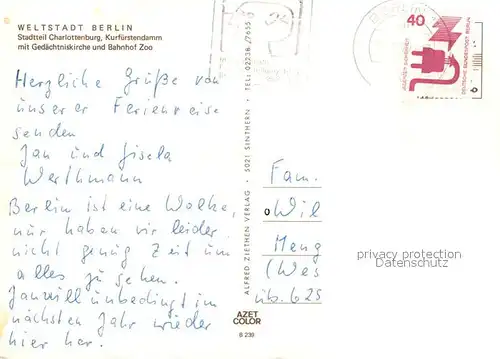 WELTSTADT BERLIN
Stadtteil Charlottenburg, Kurfürstendamm
mit Gedächtniskirche und Bahnhof Zoo
Herzliche Grüße von
unserer Ferienreise
senden
Jan und Gisela
Werthmann
Berlin ist eine Wolke,
nur haben wir leider
nicht genug Zeit um
alles zu sehen.
Jan will unbedingt im
nächsten Jahr wieder
hier her.
ALFRED ZIETHEN VERLAG · 5021 SINTHERN · TEL: 02238/7635
AZET
COLOR
B 239
BERLIN
40
JEDERZEIT SICHERHEIT
DEUTSCHE BUNDESPOST BERLIN
Fam.
Wil
Meng
(Wes
üb. 625
privacy protection
Datenschutz